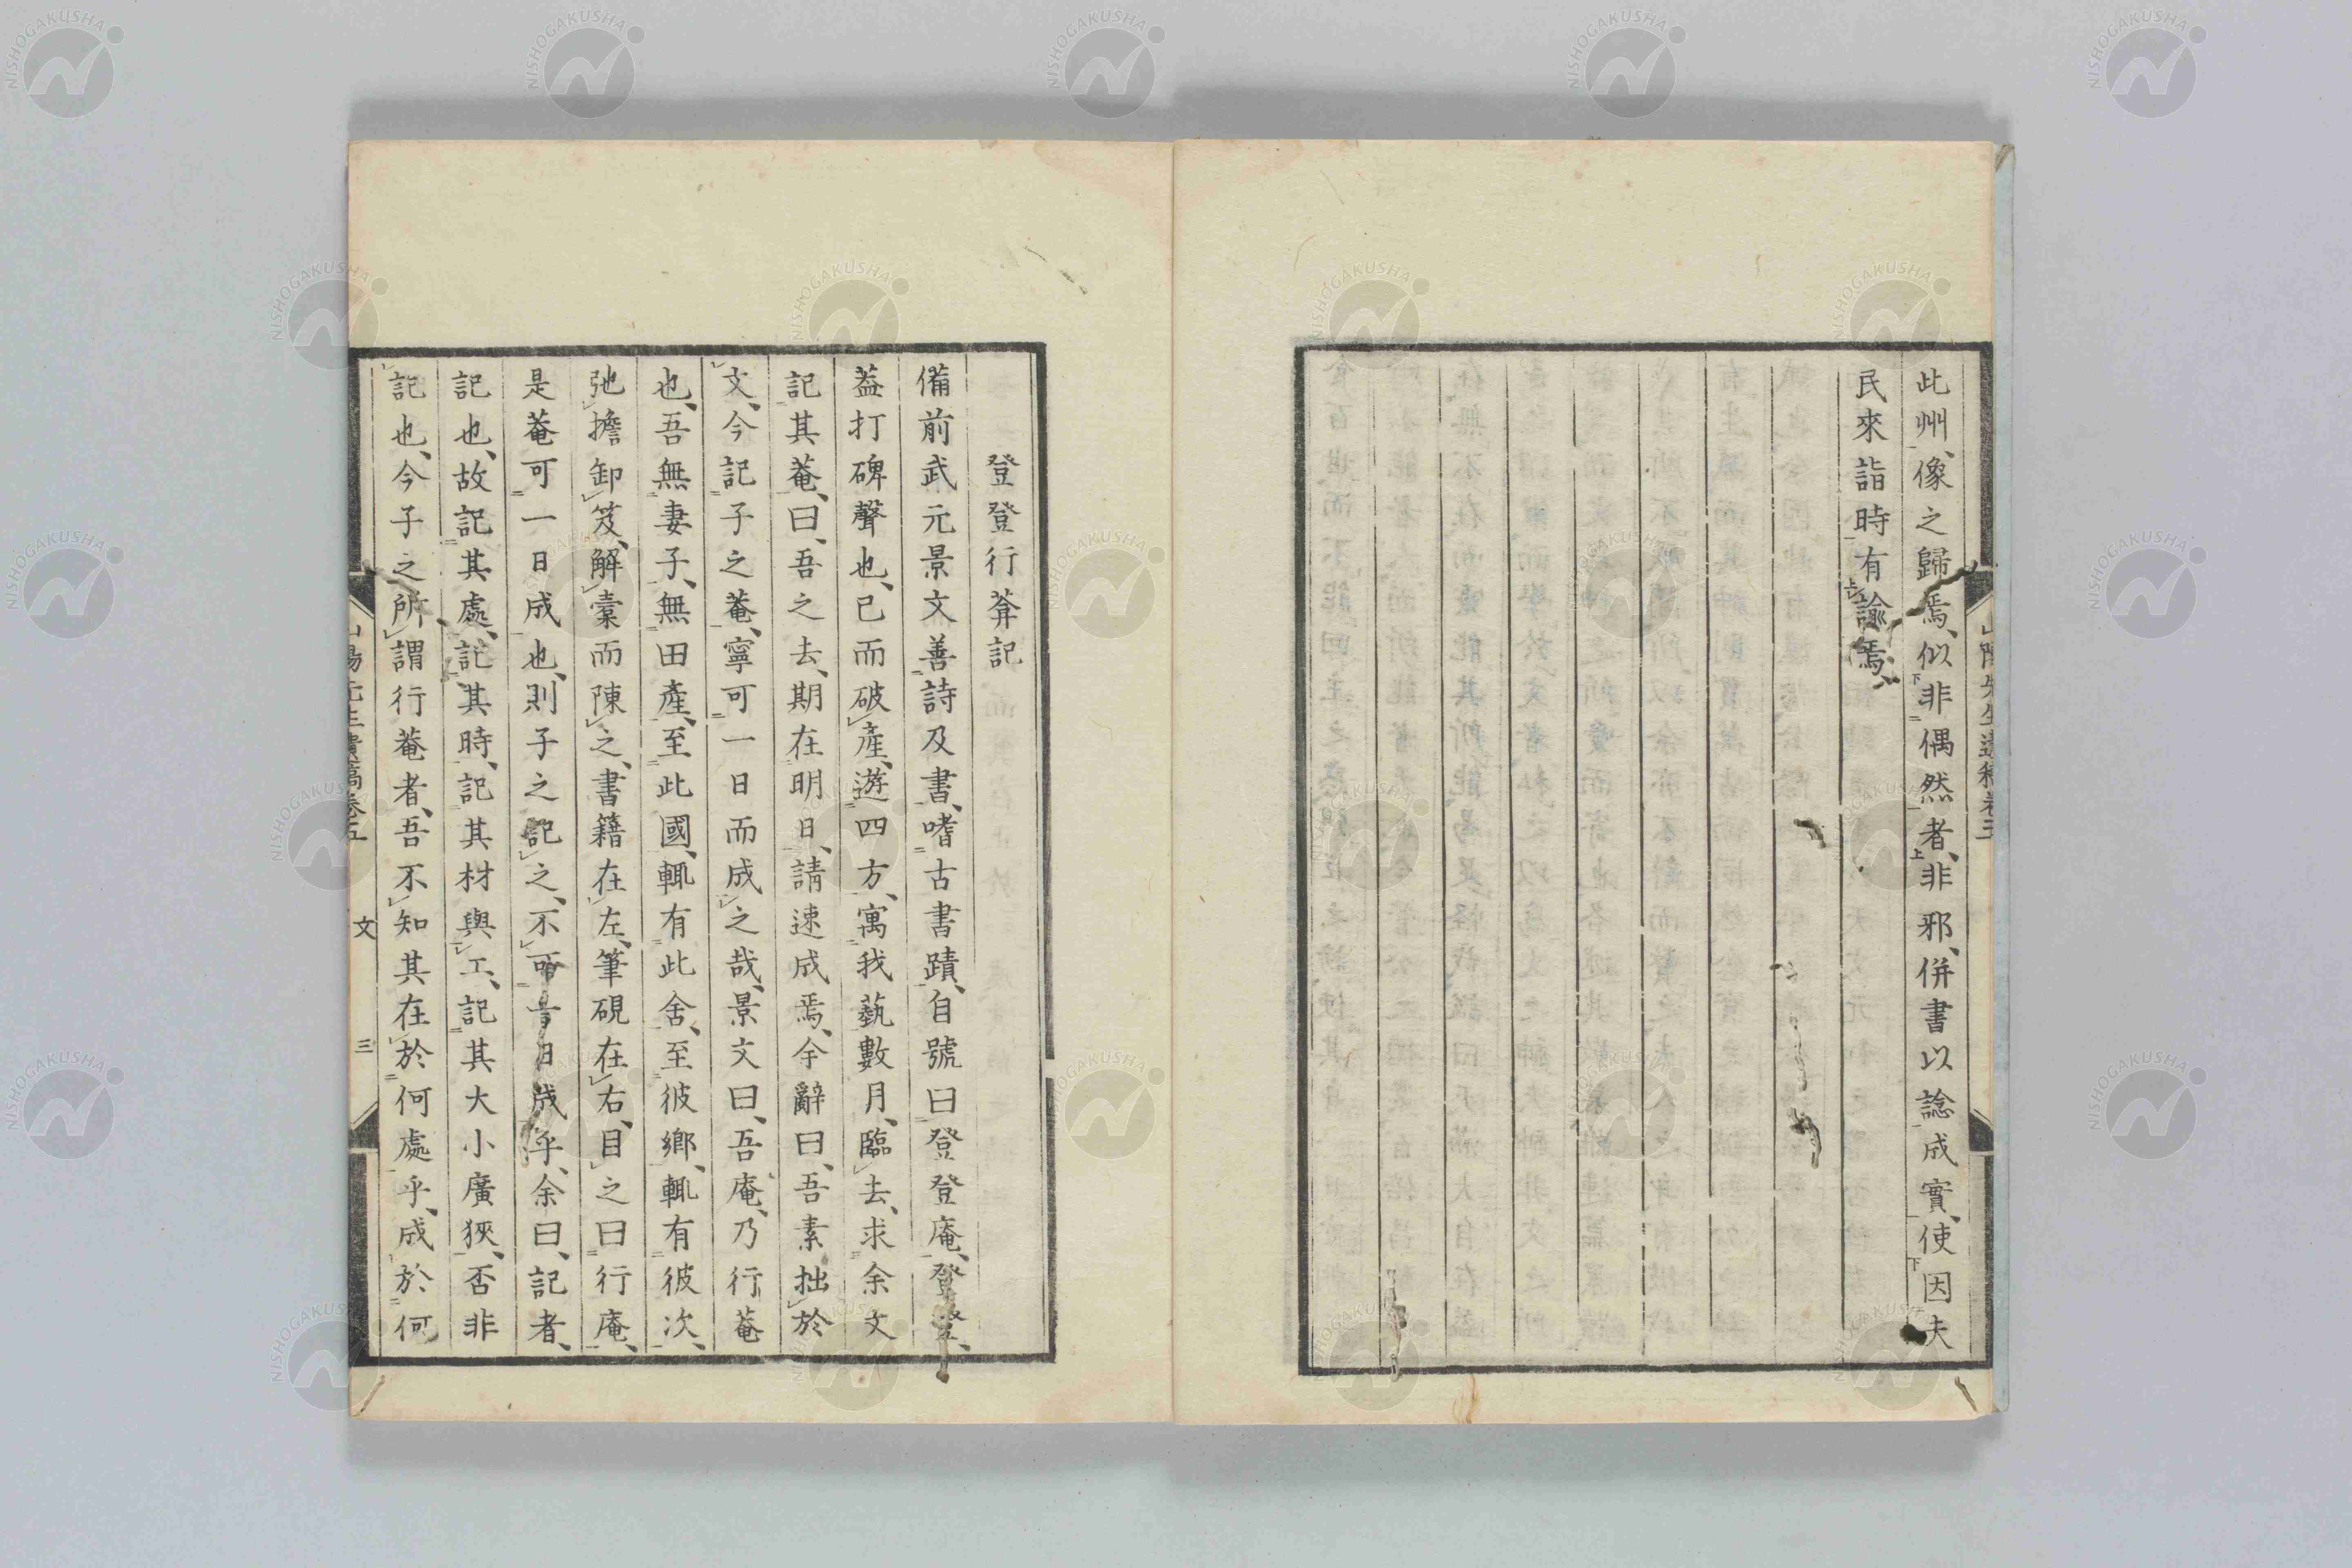 此州、像之歸焉、似非偶然者、非邪、併書以諗成實、使因夫
民來詣時有諭焉、
登登行葊記
備前武元景文善詩及書、嗜古書蹟、自號曰登登庵、登登、
葢打碑聲也、已而破產、遊四方、寓我藝數月、臨去、求余文
記其菴、曰、吾之去、期在明日、請速成焉、余辭曰、吾素拙於
文、今記子之菴、寧可一日而成之哉、景文曰、吾庵、乃行菴
也、吾無妻子、無田產、至此國、輒有此舍、至彼鄉、輒有彼次、
弛擔卸笈、解橐而陳之、書籍在左、筆硯在右、目之曰行庵、
是菴可一日成也、則子之記之、不可一日成乎、余曰、記者、
記也、故記其處、記其時、記其材與工、記其大小廣狹、否非
記也、今子之所謂行菴者、吾不知其在於何處乎、成於何
文 三
NISHOGAKUSHA